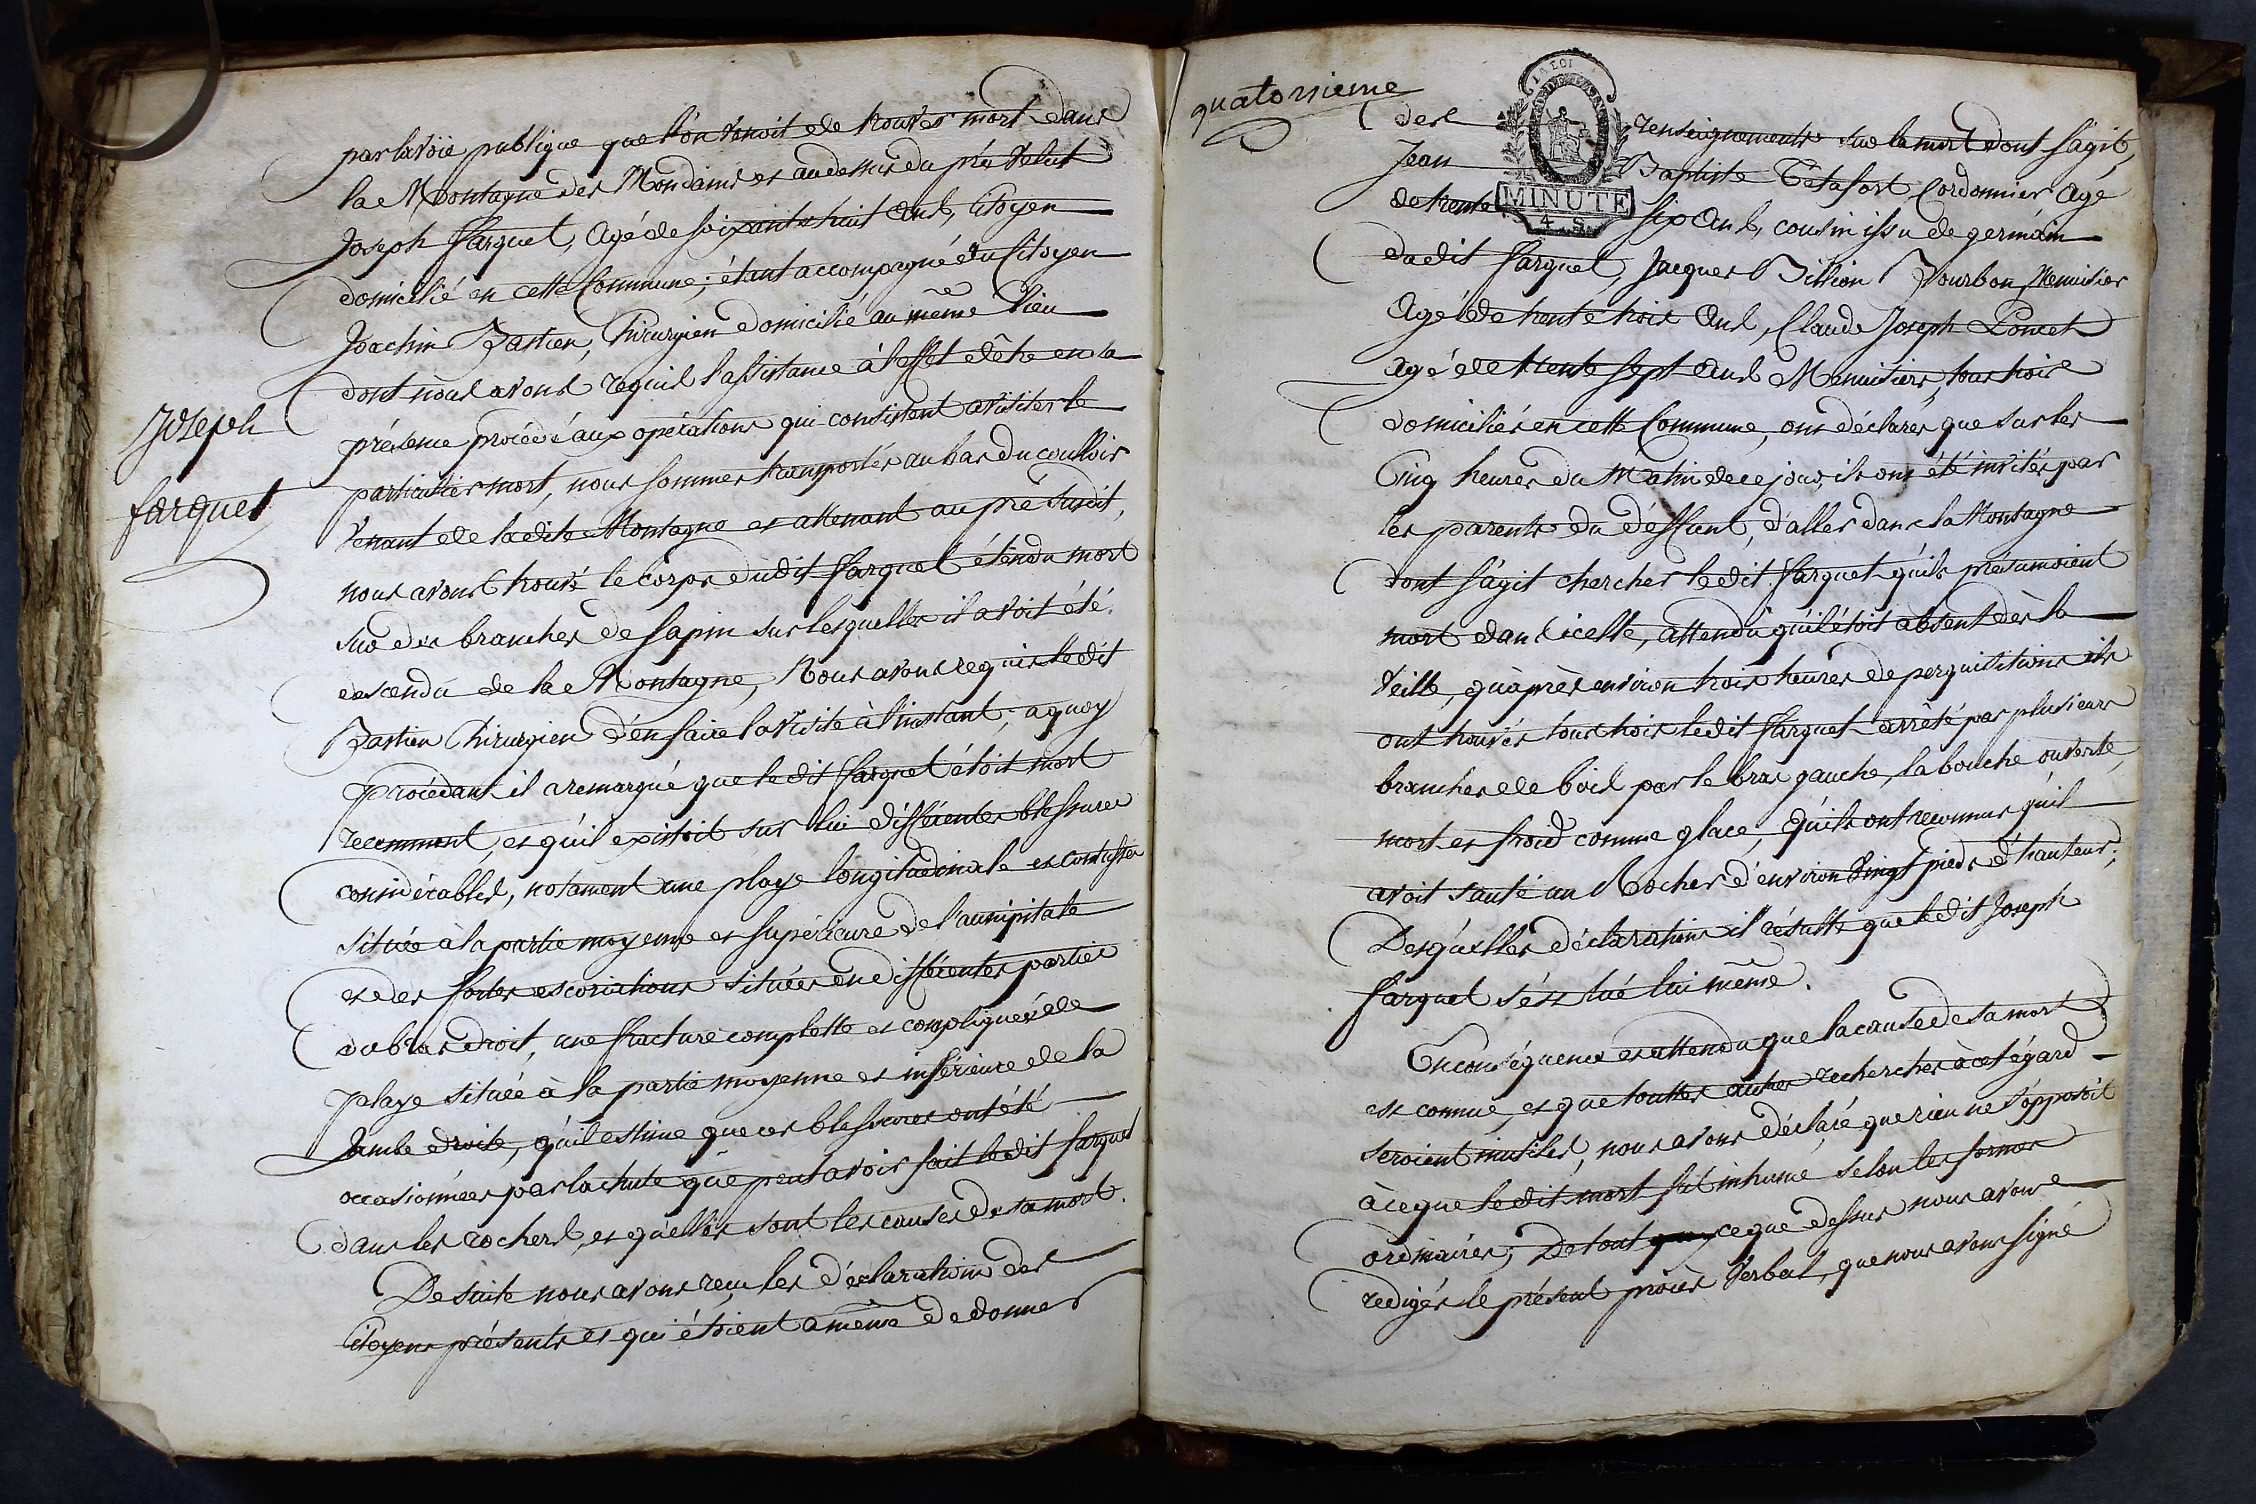 par la voie publique que l'on venoit de trouver mort dans
la Montagne des Mondains et au dessus du pré Velut
Joseph Farquet, agé de soixante huit ans, Citoyen
domicilié en cette Commune; étant accompagné du Citoyen
Joachin Bastien, Chirurgien domicilié au même lieu
dont nous avons requis l'assistance à l'effet d'être en sa
Joseph
farquet
présence procédé aux opérations qui consistent a visiter le
particulier mort, nous sommes transportés au bas du coulloir
Venant de ladite Montagne et attenant au pré susdit,
nous avons trouvé le corps dudit Farquet étendu mort
sur des branches de sapin sur lesquelles il avoit été
descendu de la Montagne, Nous avons requis ledit
Bastien Chirurgien d'en faire la visite à l'instant; a quoy
procédant il a remarqué que ledit Farquet étoit mort
recemment, et qu'il existoit sur lui différentes blessures
considérables, notament une playe longitudinale et contusse
située à la partie moyenne et supérieure de l'auxipitale
et des fortes escoriations situées en différentes parties
du bras droit, une fracture complette et compliquée de
playe située à la partie moyenne et inférieure de la
Jambe droite, qu'il estime que ces blessures ont été
occasionnées par la chute que peut avoir fait ledit farquet
dans les rochers, et qu'elles sont les causes de sa mort.
De suite nous avons reçu les déclarations des
Citoyens présents et qui étoient a même de donner
quatorsieme
LA LOI
MINUTE
4. S.
des renseignements sur la mort dont s'agit,
Jean Baptiste Têtafort Cordonnier agé
de trente six ans, cousin issu de germain
dudit farquet, Jacques Billion Bourbon Menuisier
agé de trente trois ans, Claude Joseph Poncet
agé de trente sept ans Menuisiers, tous trois
domiciliés en cette Commune, ont déclarés que sur les
Cinq heures du Matin de ce jour, ils ont été invités par
les parents du déffunt, d'aller dans la Montagne
dont s'agit chercher ledit farquet qu'ils présumoient
mort dans icelle, attendu qu'il étoit absent dès la
Veille, qu'après environ trois heures de perquisitions ils
ont trouvés tous trois ledit farquet arrêté par plusieurs
branches de bois par le bras gauche, la bouche ouverte,
mort et froid comme glace, qu'ils ont reconnus qu'il
avoit sauté un Rocher d'environ Vingt pieds d'hauteur;
Desquelles déclarations il résulte que ledit Joseph
farquet s'ést tué lui même.
En conséquence et attendu que la cause de sa mort
est connue, et que touttes autres recherches à cet égard
seroient inutiles, nous avons déclaré que rien ne s'opposoit
à ce que ledit mort fut inhumé selon les formes
ordinaires; De tout ce que dessus nous avons
redigés le présent procès Verbal, que nous avons signé